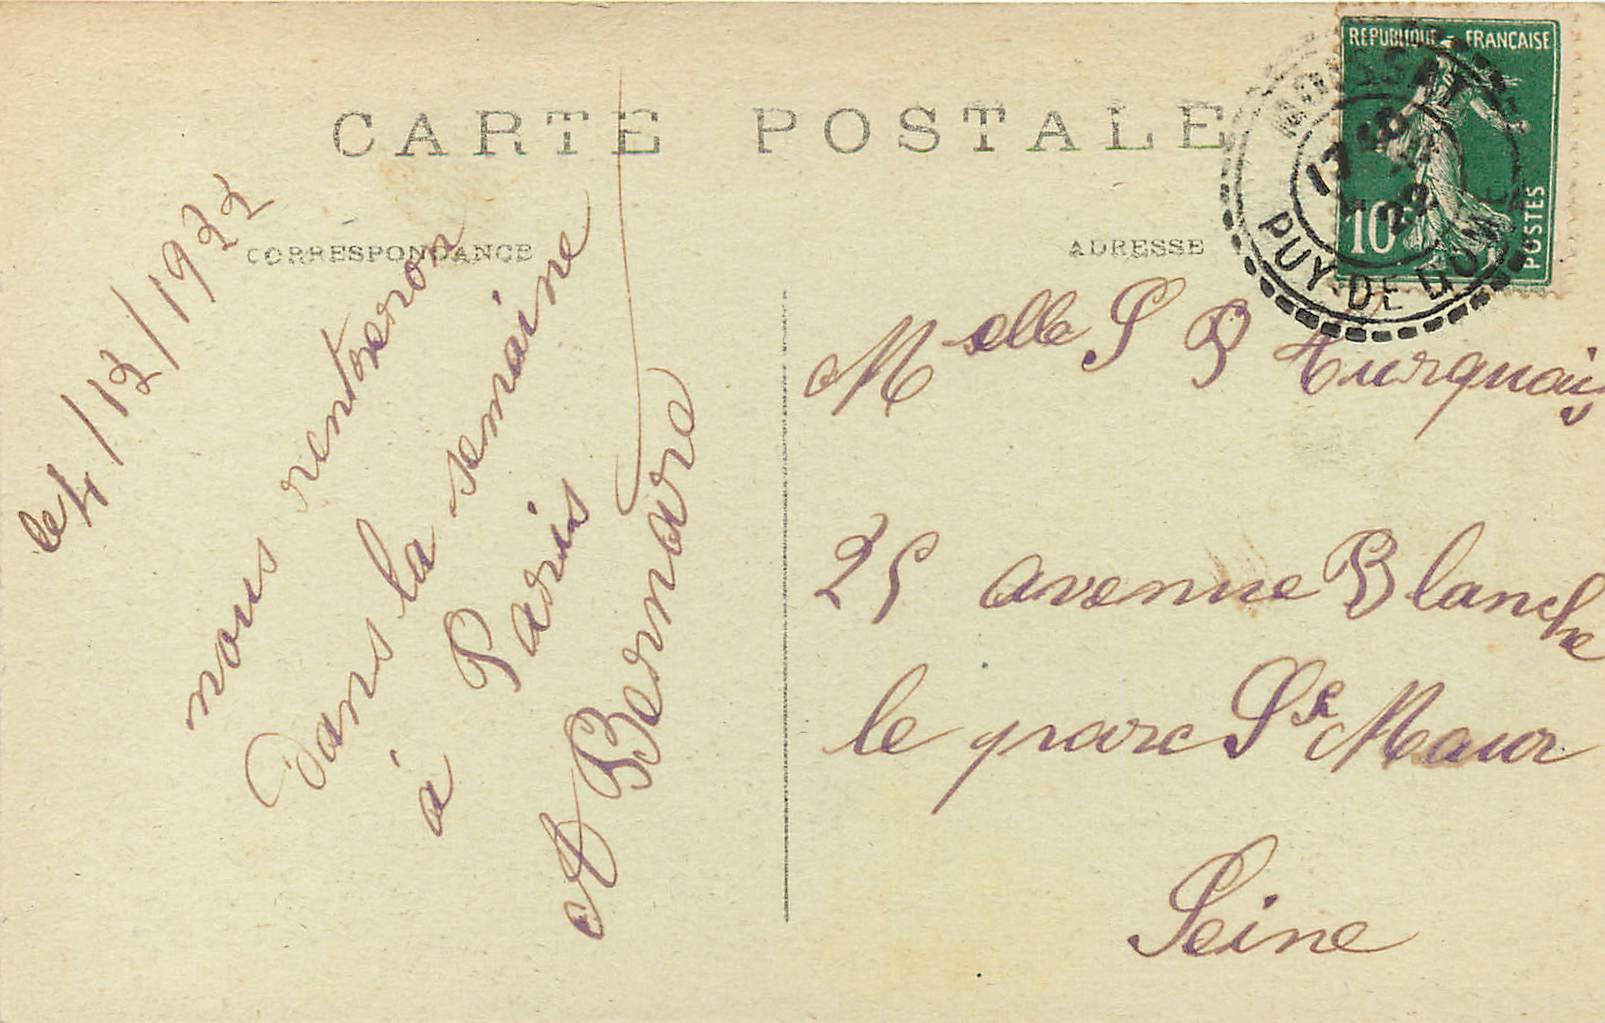 CARTE POSTALE
CORRESPONDANCE
ADRESSE
REPUBLIQUE FRANÇAISE
10c
POSTES
PUY-DE-DOME
le 4/12/1922
nous rentreron
dans la semaine
à Paris
A Bernard
Melle S P Turquais
25 avenue Blanche
le parc St Maur
Seine